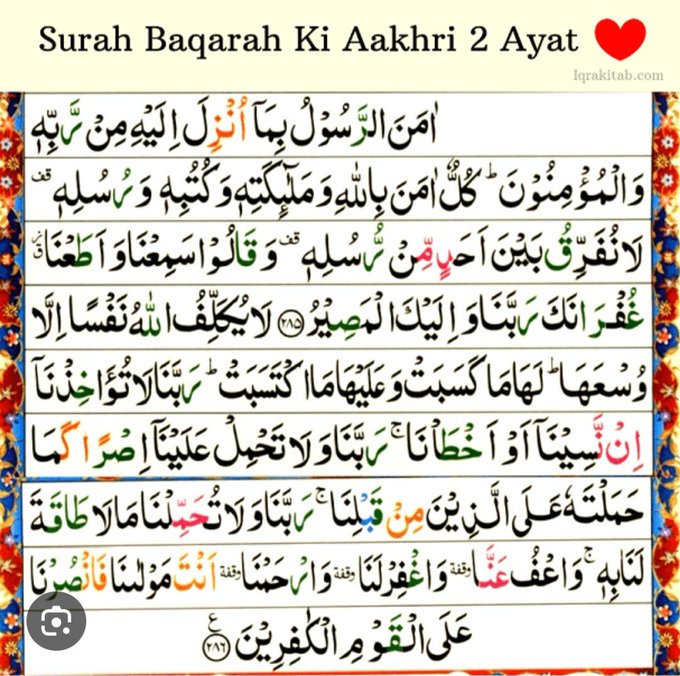 Surah Baqarah Ki Aakhri 2 Ayat
Iqrakitab.com
اٰمَنَ الرَّسُوْلُ بِمَاۤ اُنْزِلَ اِلَيْهِ مِنْ رَّبِّهٖ
وَالْمُؤْمِنُوْنَ ؕ كُلٌّ اٰمَنَ بِاللّٰهِ وَمَلٰٓئِكَتِهٖ وَكُتُبِهٖ وَرُسُلِهٖ ۟قف
لَا نُفَرِّقُ بَيْنَ اَحَدٍ مِّنْ رُّسُلِهٖ ۟قف وَقَالُوْا سَمِعْنَا وَاَطَعْنَا
غُفْرَانَكَ رَبَّنَا وَاِلَيْكَ الْمَصِيْرُ ۝۲۸۵ لَا يُكَلِّفُ اللّٰهُ نَفْسًا اِلَّا
وُسْعَهَا ؕ لَهَا مَا كَسَبَتْ وَعَلَيْهَا مَا اكْتَسَبَتْ ؕ رَبَّنَا لَا تُؤَاخِذْنَاۤ
اِنْ نَّسِيْنَاۤ اَوْ اَخْطَاْنَا ۚ رَبَّنَا وَلَا تَحْمِلْ عَلَيْنَاۤ اِصْرًا كَمَا
حَمَلْتَهٗ عَلَى الَّذِيْنَ مِنْ قَبْلِنَا ۚ رَبَّنَا وَلَا تُحَمِّلْنَا مَا لَا طَاقَةَ
لَنَا بِهٖ ۚ وَاعْفُ عَنَّا وقفة وَاغْفِرْ لَنَا وقفة وَارْحَمْنَا وقفة اَنْتَ مَوْلٰىنَا فَانْصُرْنَا
عَلَى الْقَوْمِ الْكٰفِرِيْنَ ۝۲۸۶ ع